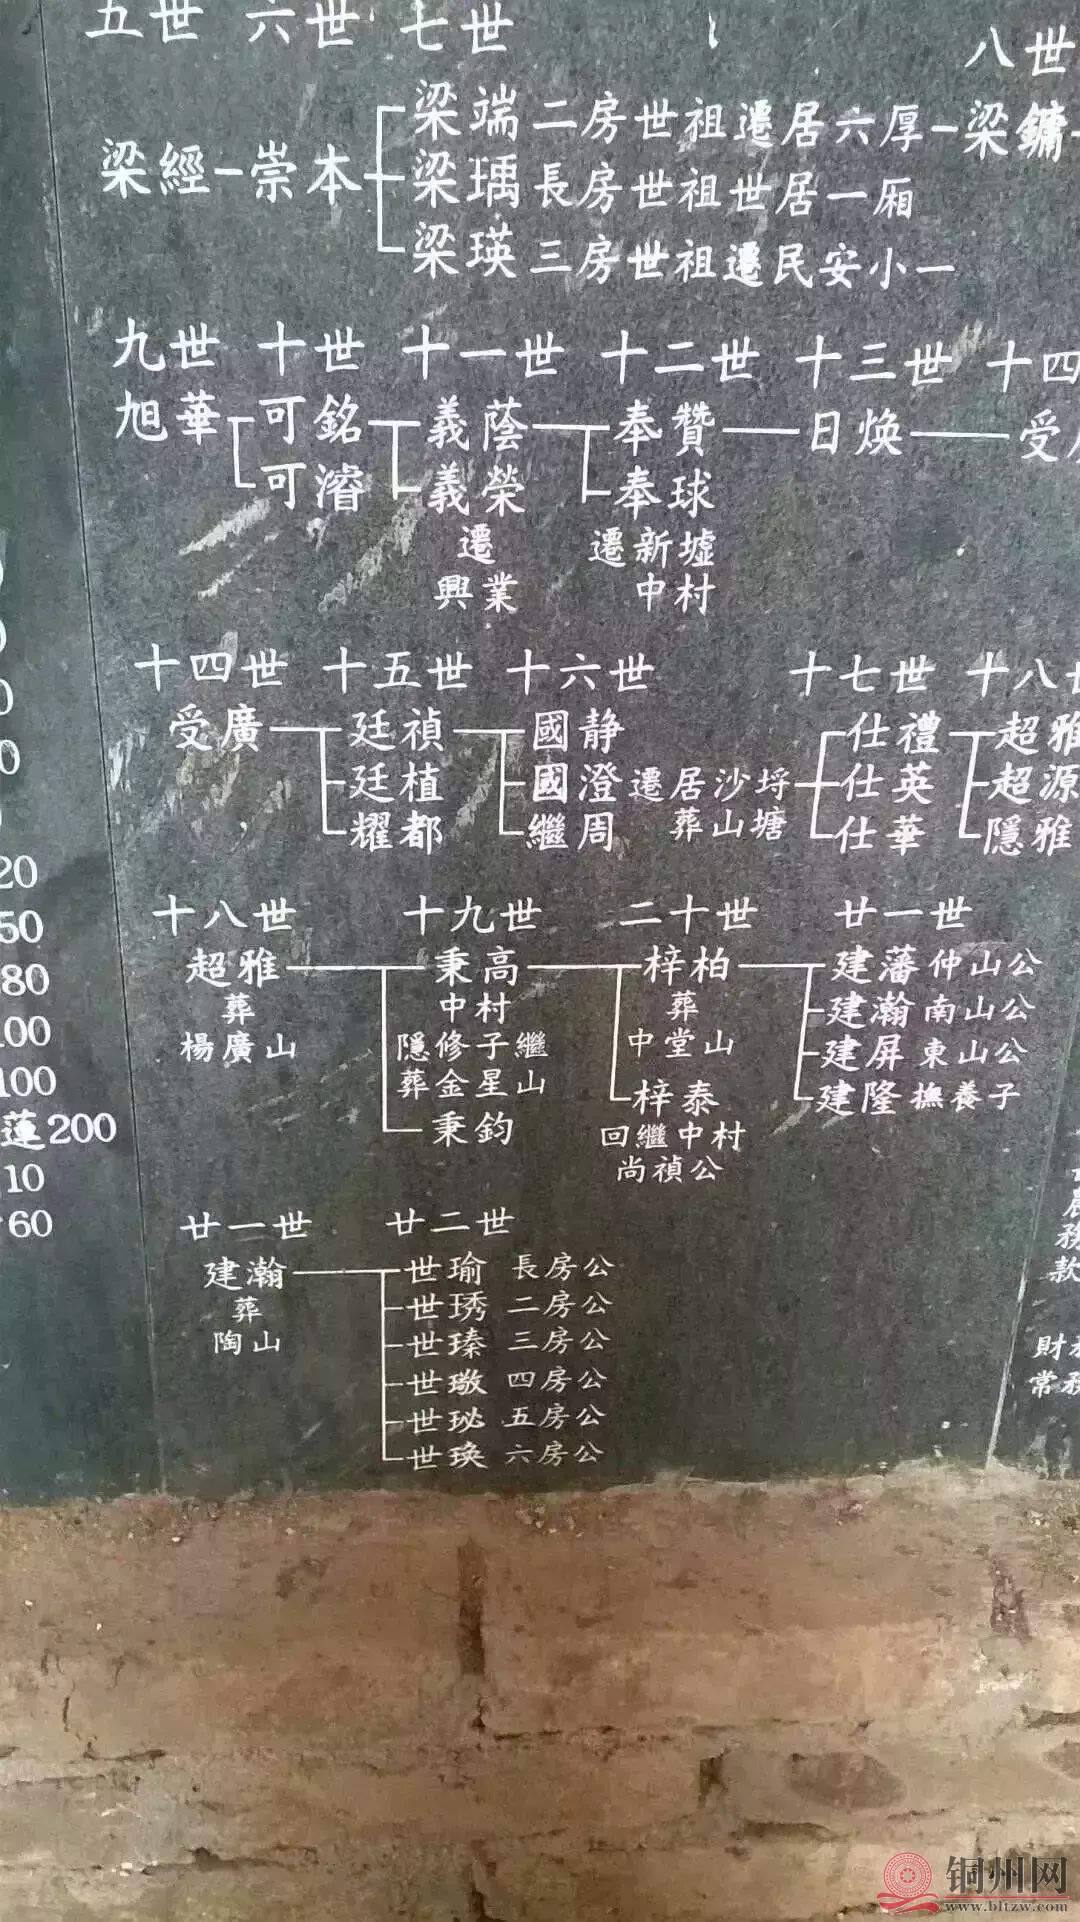 五世 六世 七世
八世
梁端 二房世祖遷居六厚
梁經 崇本 梁瑀 長房世祖世居一厢
梁鏞
梁瑛 三房世祖遷民安小一
九世 十世 十一世 十二世 十三世 十四
旭華 可銘 義蔭 奉贊 日焕 受
可濬 義榮 奉球
遷 遷新墟
興業 中村
十四世 十五世 十六世 十七世 十八世
受廣 廷禎 國静 仕禮 超雅
廷植 國澄 遷居沙埒 仕英 超源
耀都 繼周 葬山塘 仕華 隱雅
十八世 十九世 二十世 廿一世
超雅 秉高 梓柏 建藩 仲山公
葬 中村 葬 建瀚 南山公
楊廣山 隱修子繼 中堂山 建屏 東山公
葬金星山 梓泰 建隆 撫養子
秉鈞 回繼中村
尚禎公
廿一世 廿二世
建瀚 世瑜 長房公
葬 世琇 二房公
陶山 世瑧 三房公
世璥 四房公
世珌 五房公
世瑍 六房公
20
50
80
100
100
蓮200
10
60
務
款
財務
常務
铜州网
www.bltzw.com